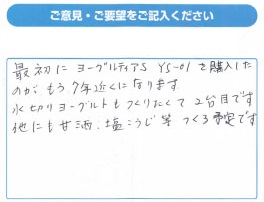 ご意見・ご要望をご記入ください
最初に ヨーグルティアS YS-01を購入した
のが、もう7年近くになります
水切りヨーグルトもつくりたくて2台目です
他にも甘酒、塩こうじ等つくる予定です